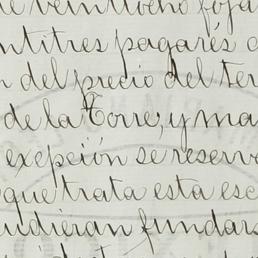 de veintiocho foja
ntitres pagarés
n del precio del ter
de la Torre, y ma
exepción se reserv
que trata esta esc
udieran fundars